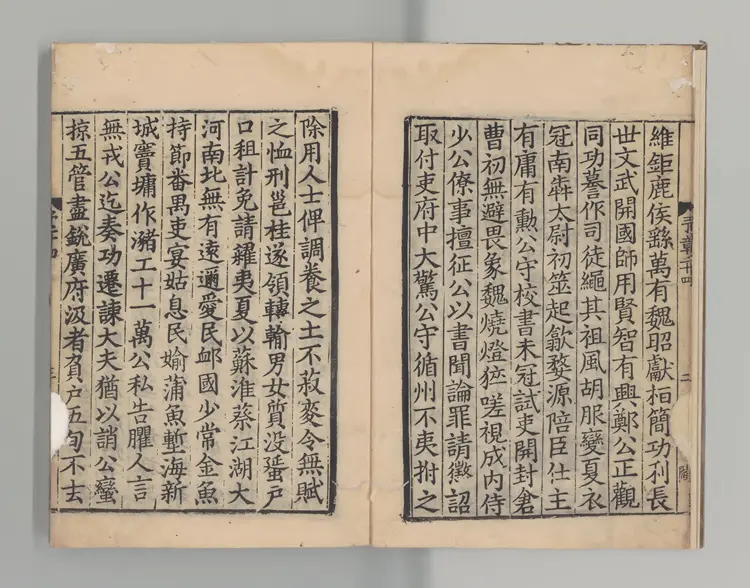 維鉅鹿侯繇萬有魏昭獻栢簡功利長
世文武開國師用賢智有興鄭公正觀
同功謩作司徒繩其祖風胡服變夏衣
冠南犇太尉初筮起歙婺源陪臣仕主
有庸有勳公守校書未冠試吏開封倉
曹初無避畏象魏燒燈狂嗟視成内侍
少公僚事擅征公以書聞論罪請懲詔
取付吏府中大驚公守循州不夷拊之
二
除用人士俾調養之土不菽麥令無賦
之恤刑邕桂遂領轉輸男女質没蜑戶
口租計免請糴夷夏以蘇淮蔡江湖大
河南北無有遠邇愛民卹國少常金魚
持節番禺吏宴姑息民媮蒲魚塹海新
城竇墉作瀦工十一萬公私告臞人言
無戎公迄奏功遷諫大夫猶以誚公蠻
掠五管盡銳廣府汲者負戶五旬不去
三